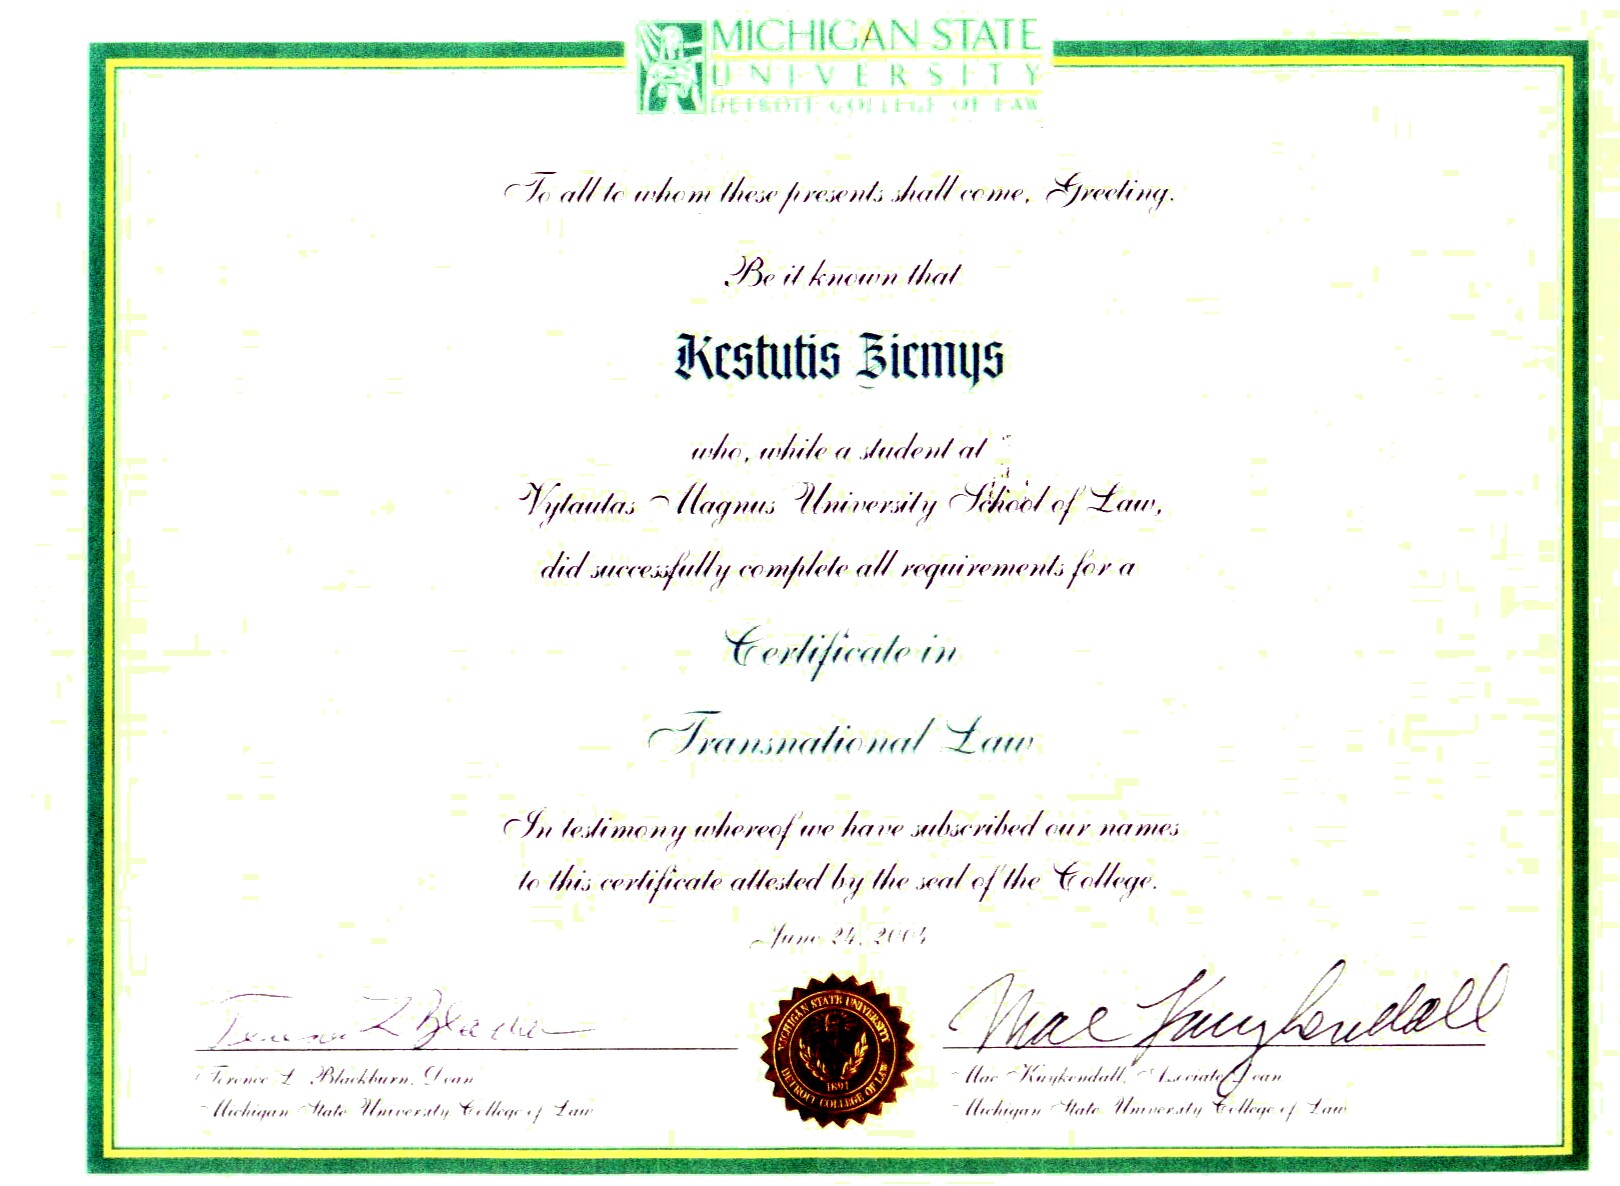 MICHIGAN STATE
UNIVERSITY
DETROIT COLLEGE OF LAW
To all to whom these presents shall come, Greeting.
Be it known that
Kestutis Ziemys
who, while a student at
Vytautas Magnus University School of Law,
did successfully complete all requirements for a
Certificate in
Transnational Law
In testimony whereof we have subscribed our names
to this certificate attested by the seal of the College.
June 24, 2004
Terence L Blackburn
Mae Kuykendall
MICHIGAN STATE UNIVERSITY
1891
DETROIT COLLEGE OF LAW
Terence L. Blackburn, Dean
Michigan State University College of Law
Mae Kuykendall, Associate Dean
Michigan State University College of Law